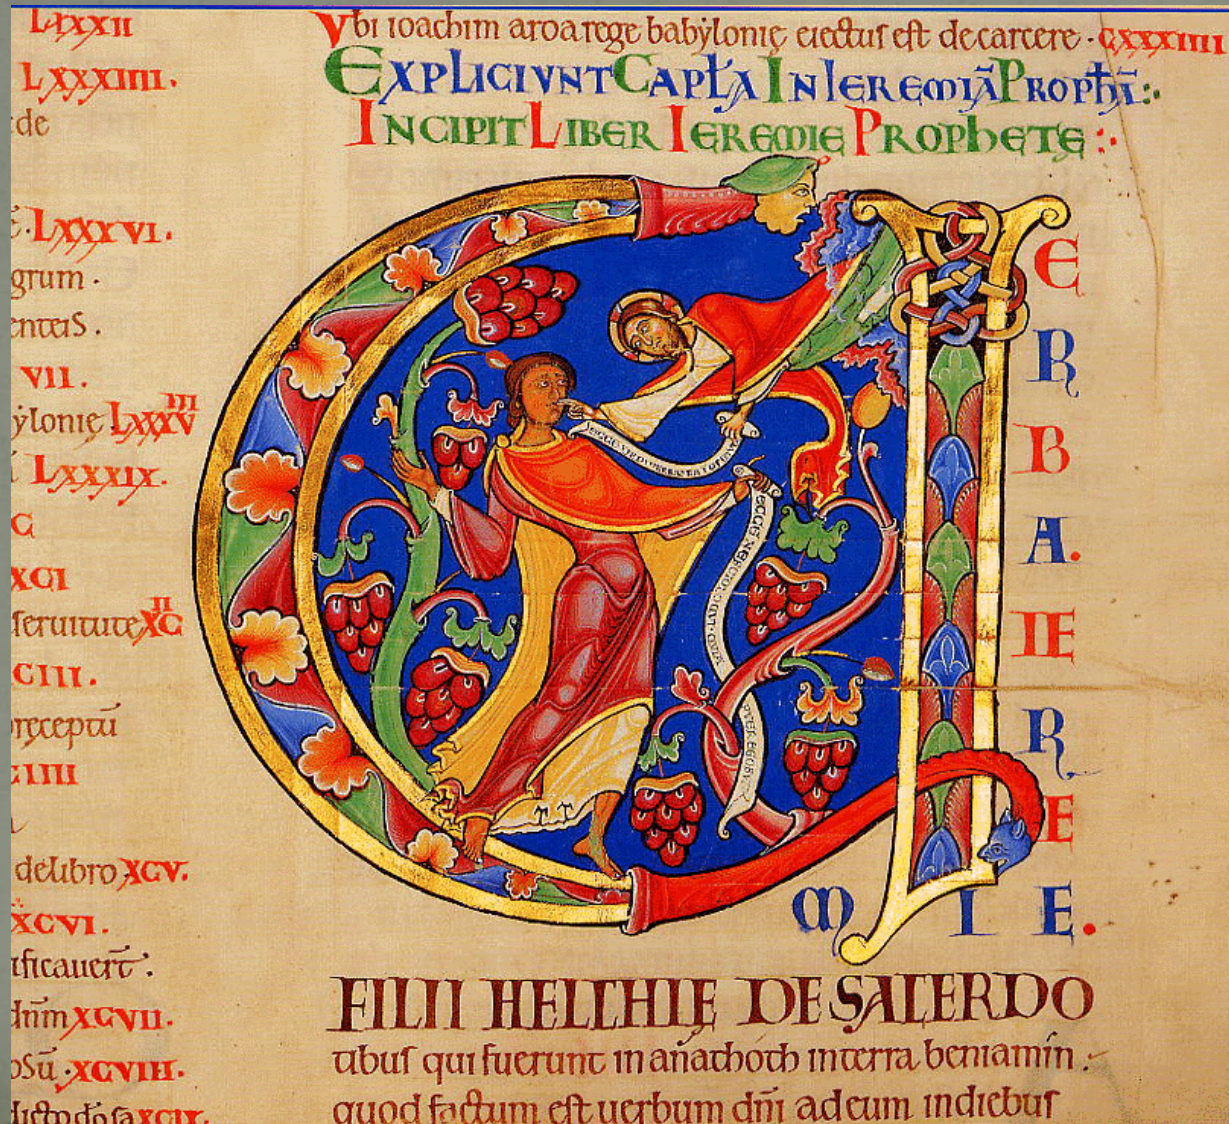 LXXXII
LXXXIIII.
de
LXXXVI.
grum.
enteis.
VII.
ẏlonię LXXXVIII
LXXXIX.
C
XCI
seruitute XCII
CIII.
pręceptū
CIIII
de libro XCV.
XCVI.
ificauer̄t.
dn̄m XCVII.
osū. XCVIII.
XCIX.
Vbi ioachim aroa rege babẏlonię eiectus est de carcere. CXXXIIII
EXPLICIVNT CAPŁA IN IEREMIĀ PROPhĀ:.
INCIPIT LIBER IEREMIE PROPHETE:.
VERBA. IEREMIE.
ECCE
ECCE NESCIO LOQVI QVIA PVER EGO SV
FILII HELCHIĘ DE SACERDO
tibus qui fuerunt in anathoth in terra beniamin.
quod factum est uerbum dn̄i ad eum in diebus